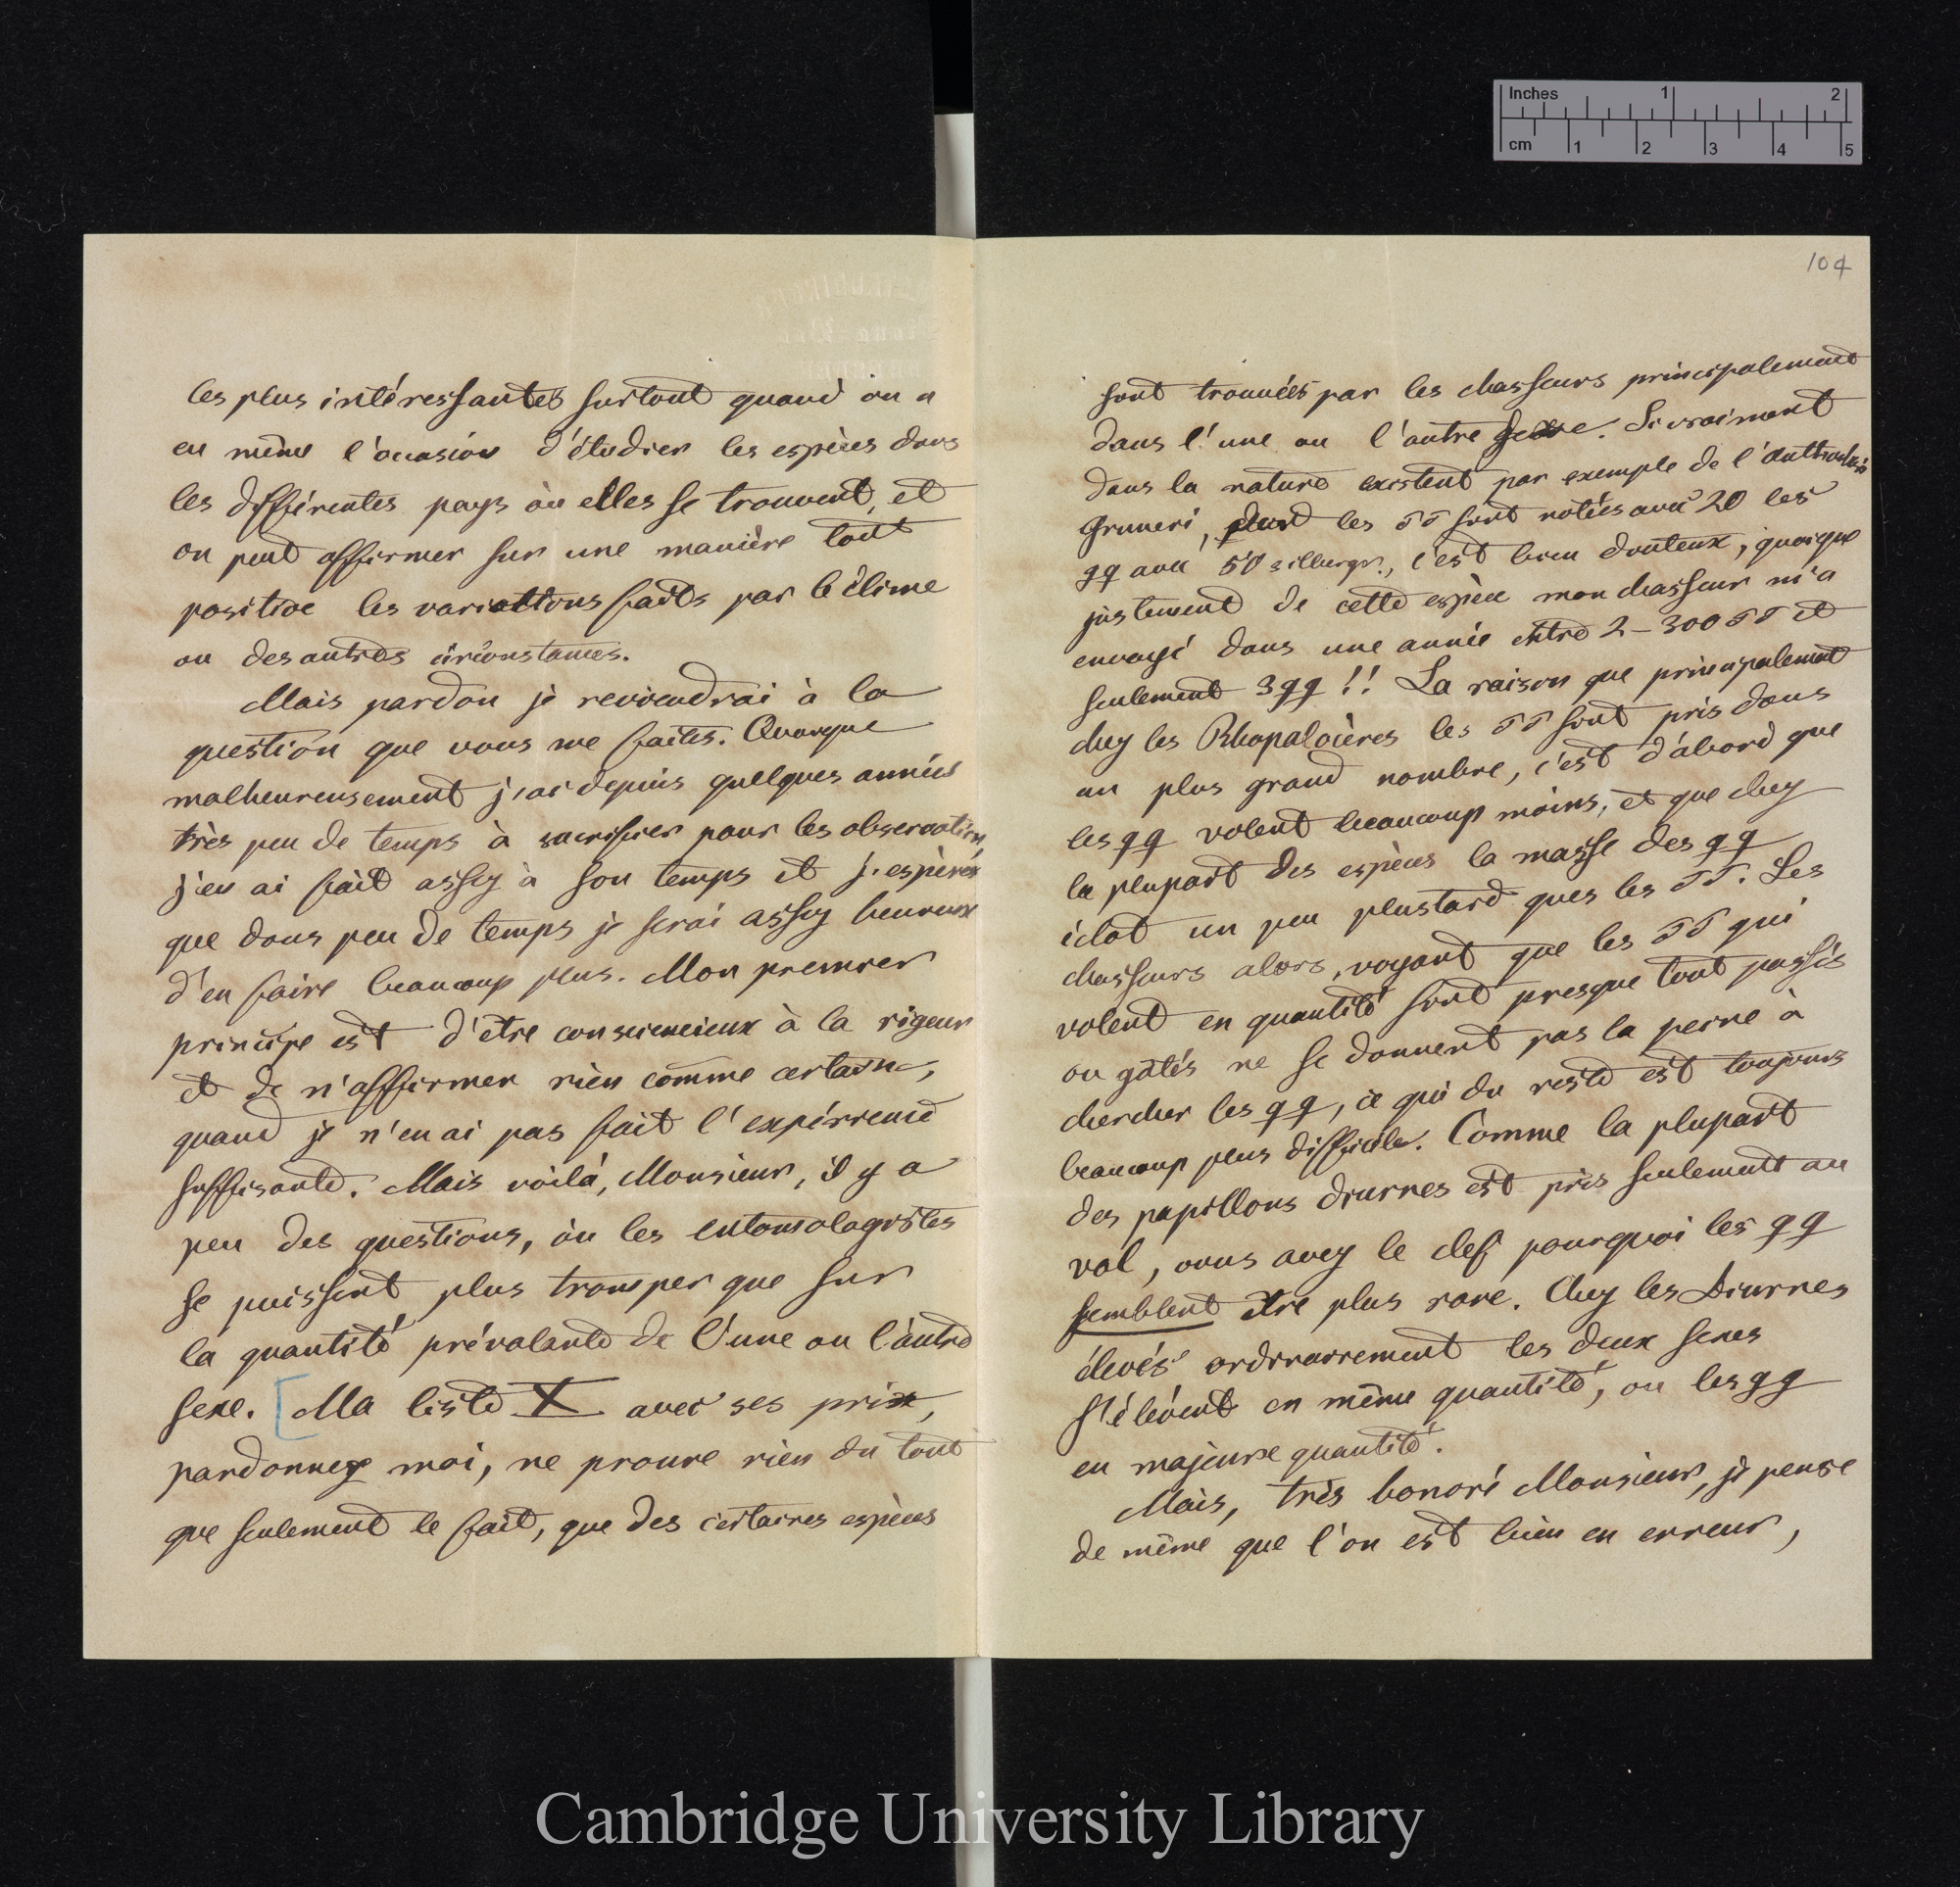 Inches 1 2
cm 1 2 3 4 5
104
les plus intéressantes surtout quand on a
eu même l'occasion d'étudier les espèces dans
les différentes pays où elles se trouvent, et
on peut affirmer sur une manière tout
positive les variations faits par le clime
ou des autres circonstances.
Mais pardon je reviendrai à la
question que vous me faites. Quoique
malheureusement j'ai depuis quelques années
très peu de temps à sacrifier pour les observations,
j'en ai fait assez à son temps et j'espère
que dans peu de temps je serai assez heureux
d'en faire beaucoup plus. Mon premier
principe est d'être consciencieux à la rigeur
et de n'affirmer rien comme certain,
quand je n'en ai pas fait l'expérience
suffisante. Mais voilà, Monsieur, il y a
peu des questions, où les entomologistes
se puissent plus tromper que sur
la quantité prévalante de l'une ou l'autre
sexe. [Ma liste X avec ses prix,
pardonnez moi, ne prouve rien du tout
que seulement le fait, que des certaines espèces
sont trouvées par les chasseurs principalement
dans l'une ou l'autre sexe. Si vraiment
dans la nature existent par exemple de l'Anthocharis
Gruneri, dont les ♂♂ sont notées avec 20 les
♀♀ avec 50 silbergr., c'est bien douteux, quoique
justement de cette espèce mon chasseur m'a
envoyé dans une année entre 2–300 ♂♂ et
seulement 3 ♀♀!! La raison que principalement
chez les Rhopalocères les ♂♂ sont pris dans
un plus grand nombre, c'est d'abord que
les ♀♀ volent beaucoup moins, et que chez
la plupart des espèces la masse des ♀♀
éclot un peu plustard ques les ♂♂. Les
chasseurs alors, voyant que les ♂♂ qui
volent en quantité sont presque tout passés
ou gâtés ne se donnent pas la peine à
chercher les ♀♀, ce qui du reste est toujours
beaucoup plus difficile. Comme la plupart
des papillons diurnes est pris seulement au
vol, vous avez le clef pourquoi les ♀♀
semblent être plus rare. Chez les Diurnes
élevés ordinairement les deux sexes
s'élèvent en même quantité, ou les ♀♀
en majeure quantité.
Mais, très honoré Monsieur, je pense
de même que l'on est bien en erreur,
Cambridge University Library